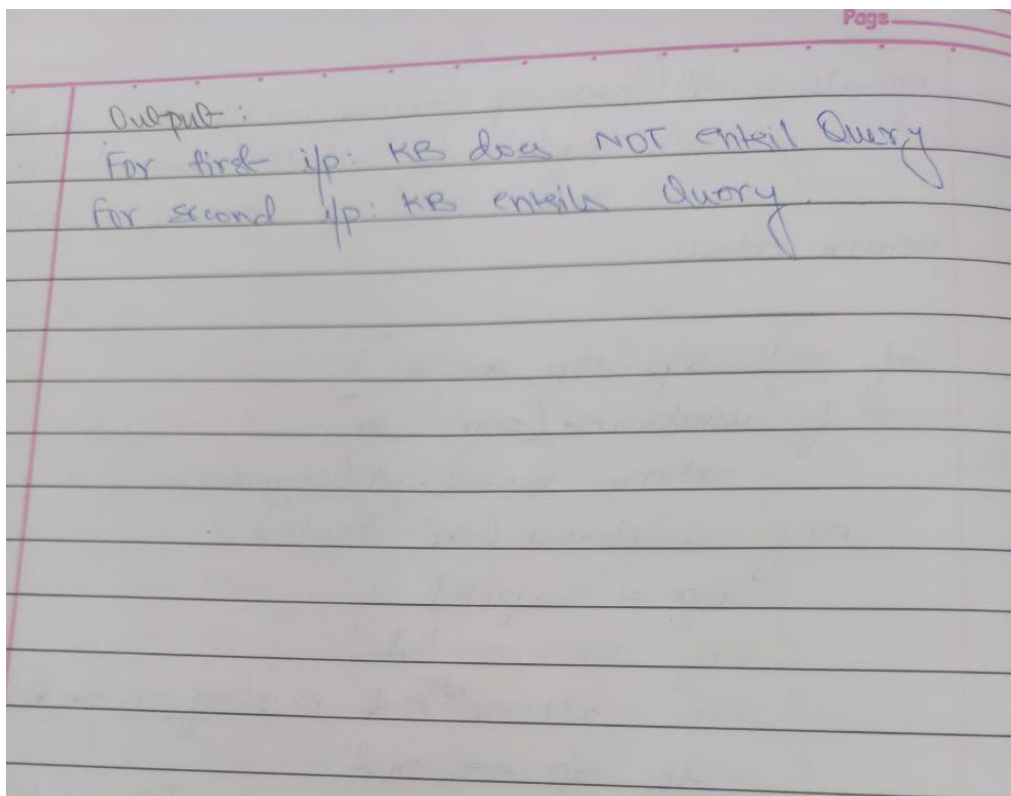 Page
Output:
For first i/p: KB does NOT entail Query
For second i/p: KB entails Query.